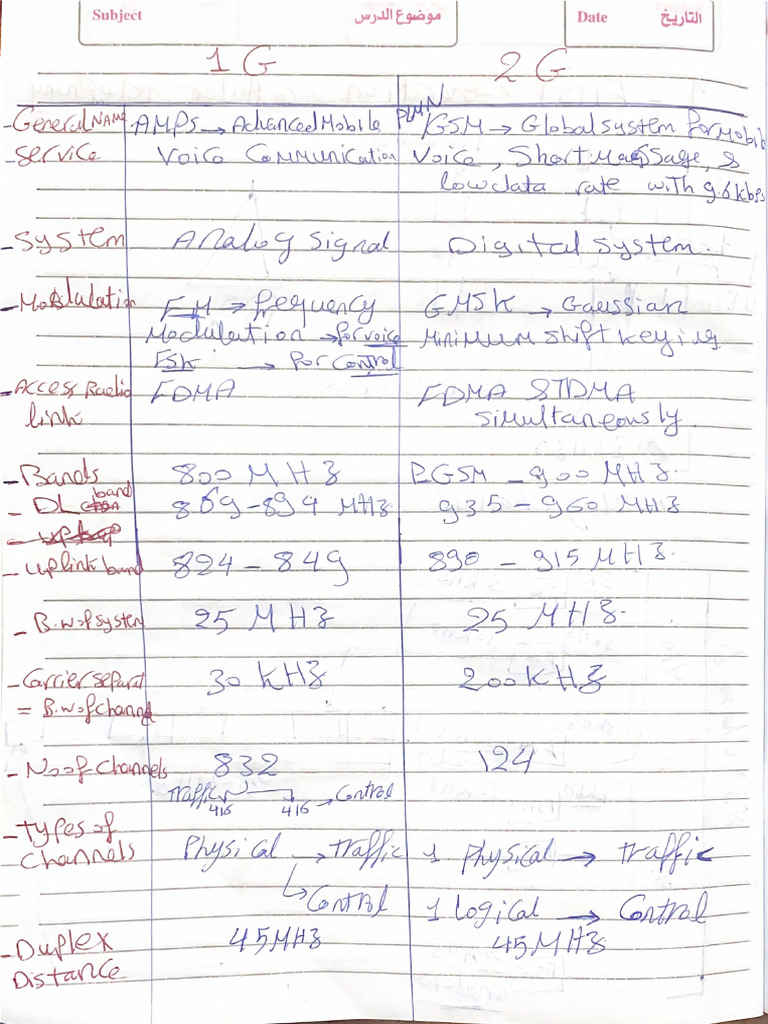 Subject موضوع الدرس Date التاريخ
1G 2G
- General NAME AMPS → Advanced Mobile PLMN /GSM → Global system for Mobile
- Service Voice Communication Voice, Short Massage, &
low data rate with 9.6 kbps
- System Analog Signal Digital system.
- Modulation FM → frequency GMSK → Gaussian
Modulation → for voice Minimum shift keying
FSK → for Control
- Access Radio FDMA FDMA & TDMA
link simultaneously
- Bands 800 MHz P.GSM - 900 MHz.
- DL band 869-894 MHz 935 - 960 MHz
- uplink band 824 - 849 890 - 915 MHz.
- B.w of system 25 MHz 25 MHz.
- Carrier separat 30 KHz 200 KHz
= B.w of channel
- No of channels 832 124
traffic 416 416 → Control
- Types of
channels Physical → traffic 1 Physical → traffic
→ Control 1 Logical → Control
- Duplex 45 MHz 45 MHz
Distance